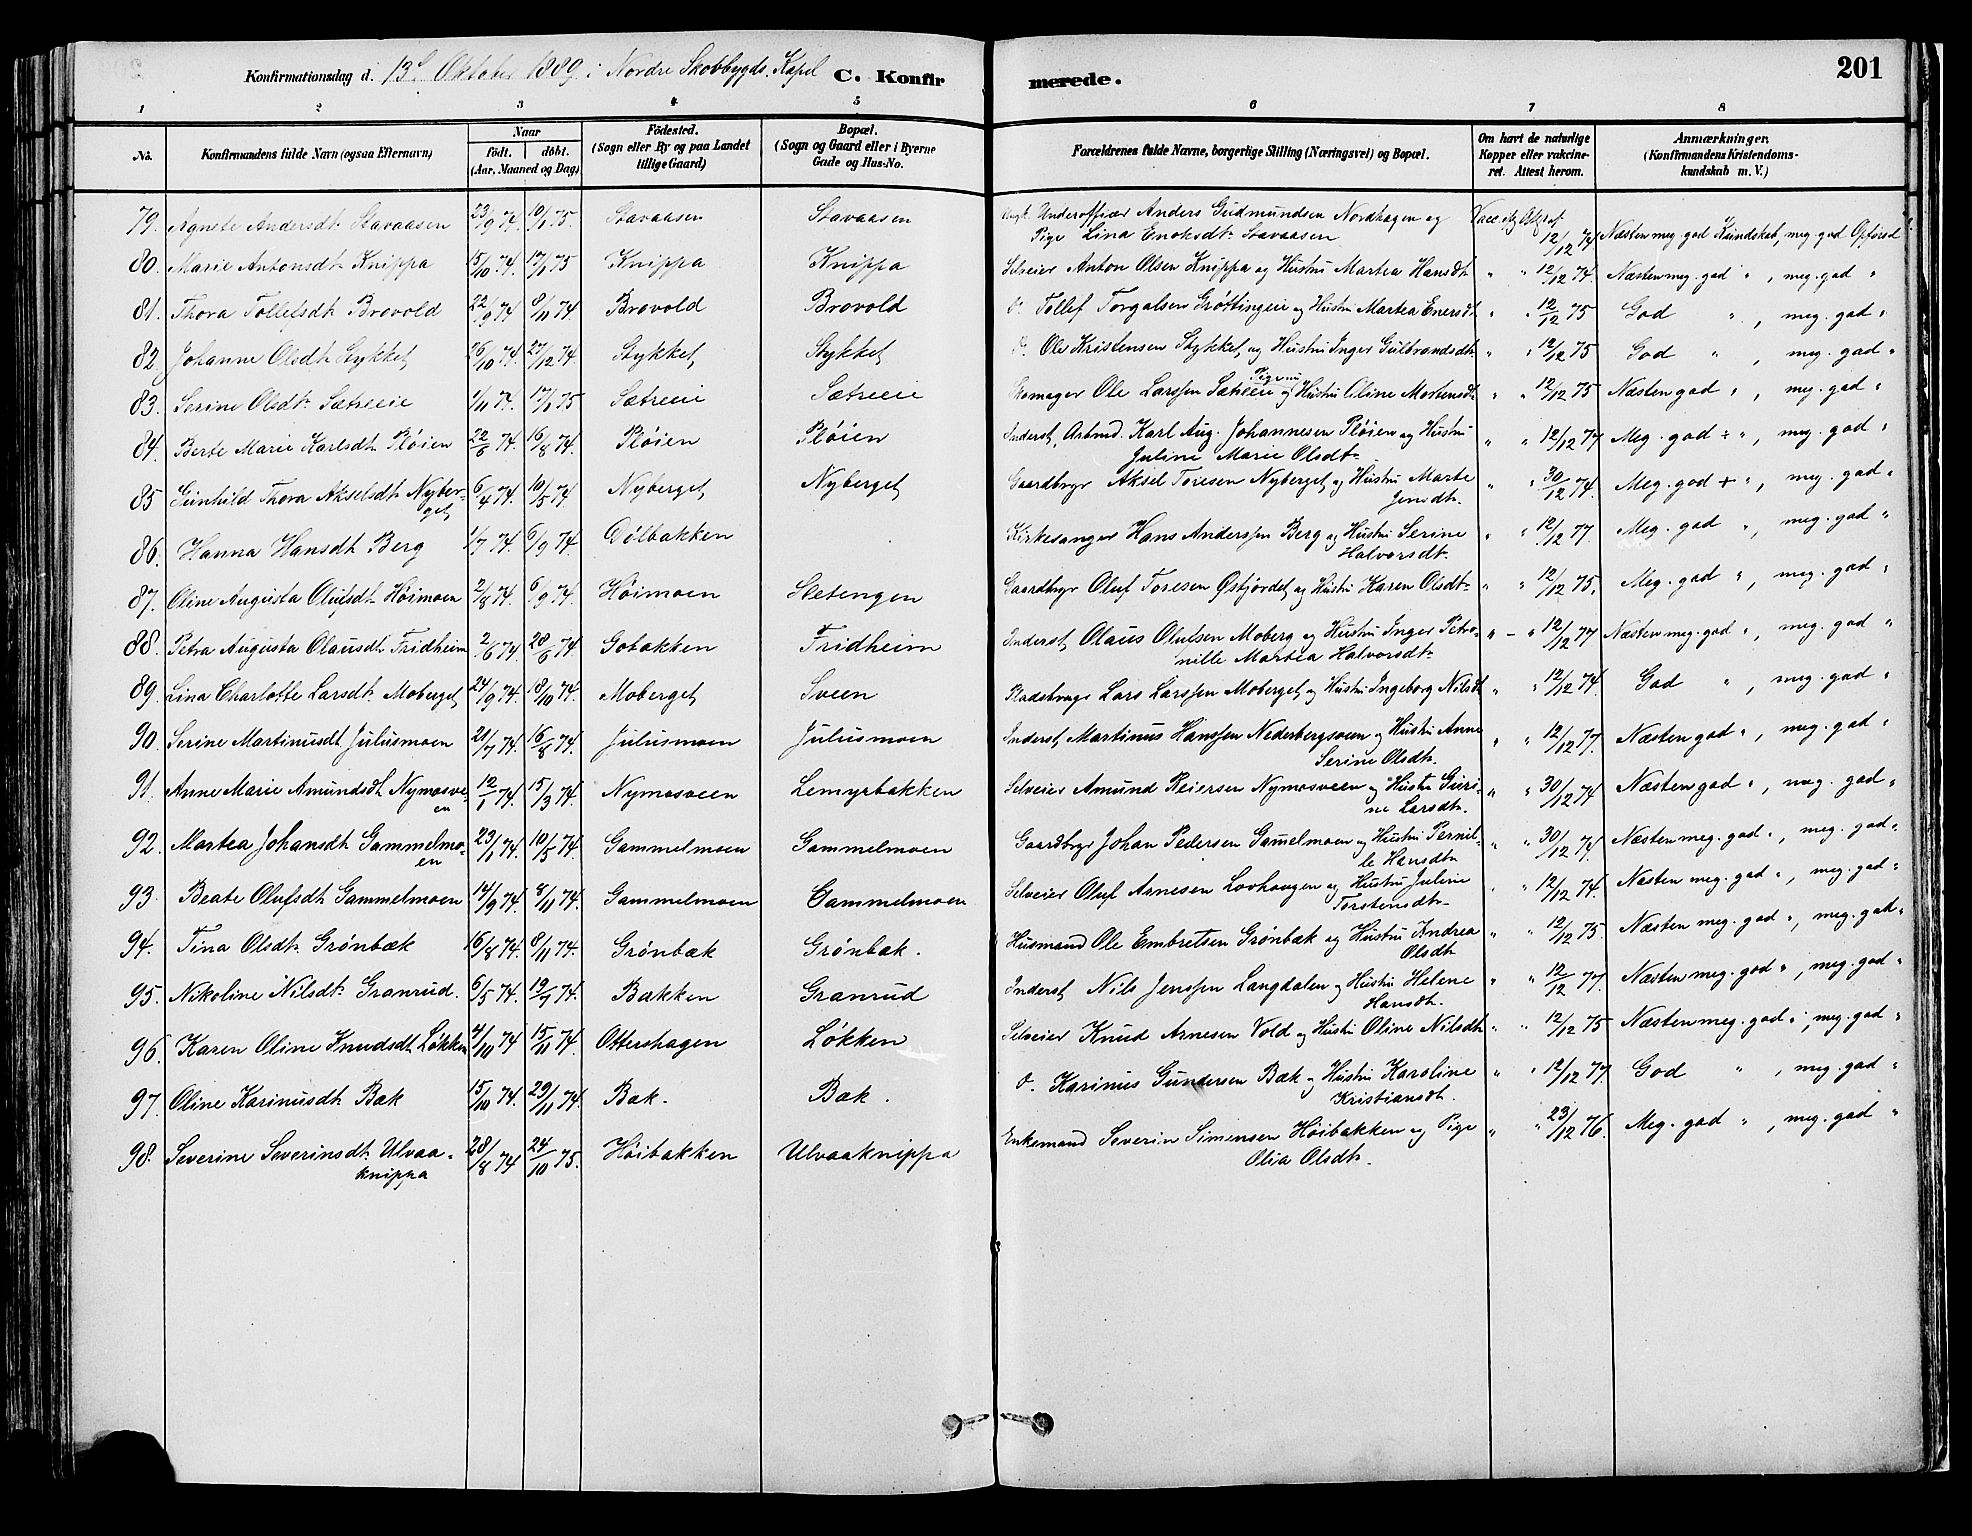 Konfirmationsdag d. 13de Oktober 1889 i Nordre Skovbygds Kapel C. Konfir merede. 201
1 2 3 4 5 6 7 8
No. Konfirmandens fulde Navn (ogsaa Efternavn) Naar födt. döbt. (Aar, Maaned og Dag) Födested. (Sogn eller By og paa Landet tillige Gaard) Bopæl. (Sogn og Gaard eller i Byerne Gade og Hus-No. Forældrenes fulde Navne, borgerlige Stilling (Næringsvei) og Bopæl. Om havt de naturlige Kopper eller vakcineret. Attest herom. Anmærkninger. (Konfirmandens Kristendomskundskab m. V.)
79. Agnete Andersdt. Stavaasen 23/9 74. 10/1 75. Stavaasen Stavaasen Ungk. Underofficer Anders Gudmundsen Nordhagen og Vacc. Attest 12/12 74 Næsten meg. god Kundskab, meg. god Opførsel
Pige Lina Enoksdt. Stavaasen
80. Marie Antonsdt. Knippa 15/10 74. 17/1 75 Knippa Knippa Selveier Anton Olsen Knippa og Hustru Martea Hansdt. " " 12/12 74. Næsten meg. god " , meg. god "
81. Thora Tollefsdt. Brovold 22/9 74 8/11 74. Brovold Brovold Do. Tollef Torgalsen Grøttingeie og Hustru Martea Enersdt. " " 12/12 75 God " , meg. god "
82. Johanne Olsdt. Stykket 26/10 74. 27/12 74 Stykket Stykket Do. Ole Kristensen Stykket og Hustru Inger Gulbrandsdt. " " 12/12 75 God " , meg. god "
83. Serine Olsdt. Sætreeie 1/11 74. 17/1 75 Sætreeie Sætreeie Skomager Ole Larssen Sætreeie og Hustru Oline Mostensdt. " " 12/12 75 Næsten god " , meg. god "
84. Berte Marie Karlsdt. Pløien 22/6 74. 16/8 74. Pløien Pløien Inderst, Arbmd. Karl Aug. Johannesen Pløien og Hustru " " 12/12 77 Meg. god ÷ " , meg. god "
Juline Marie Olsdt.
85 Gunhild Thora Akselsdt. Nyberget 6/4 74. 10/5 74. Nyberget Nyberget Gaardbrgr Aksel Toresen Nyberget og Hustru Marte " " 30/12 74. Meg. god + " , meg. god "
Jensdt.
86. Hanna Hansdt. Berg 1/7 74. 6/9 74. Dølbakken Kirkesanger Hans Anderssen Berg og Hustru Serine " " 12/12 77. Meg. god " , meg. god "
Halvorsdt.
87. Oline Augusta Olufsdt. Høimoen 2/8 74. 6/9 74. Høimoen Sletengen Gaardbrgr Oluf Toresen Østjordet og Hustru Karen Olsdt. " " 12/12 75. Meg. god " , meg. god "
88. Petra Augusta Olausdt. Fridheim 2/6 74. 28/6 74. Gobakken Fridheim Inderst Olaus Olufsen Moberg og Hustru Inger Petro- " - " 12/12 77 Næsten meg. god " , meg. god "
nille Martea Halvorsdt.
89. Lina Charlotte Larsdt. Moberget 24/9 74. 18/10 74. Moberget Sveen Pladsbrugr Lars Larssen Moberget og Hustru Ingeborg Nilsdt. " " 12/12 74. God " , meg. god "
90. Serine Martinusdt. Julusmoen 21/7 74. 16/8 74. Julusmoen Julusmoen Inderst Martinus Hanssen Nederbergsveen og Hustru Anne " " 12/12 77. Næsten god " , meg. god "
Serine Olsdt.
91. Anne Marie Amundsdt. Nymosveen 12/1 74. 15/3 74. Nymosveen Lemyrbakken Selveier Amund Reiersen Nymosveen og Hustru Guri- " " 30/12 74 Næsten god " , meg. god "
ne Larsdt.
92. Martea Johansdt. Gammelmoen 23/1 74. 10/5 74. Gammelmoen Gammelmoen Gaardbrgr Johan Pedersen Gamelmoen og Hustru Pernil- " " 30/12 74. Næsten meg. god " , meg. god "
le Hansdt.
93. Beate Olufsdt. Gammelmoen 14/9 74. 8/11 74. Gammelmoen Gammelmoen Selveier Oluf Arnesen Lovhaugen og Hustru Juline " " 12/12 74. Næsten meg. god " , meg. god "
Torstensdt.
94. Tina Olsdt. Grønbæk 16/8 74. 8/11 74. Grønbæk Grønbæk. Husmand Ole Embretsen Grønbæk og Hustru Andrea " " 12/12 75. Næsten meg. god " , meg. god "
Olsdt.
95. Nikoline Nilsdt. Granrud. 6/5 74. 19/7 74. Bakken Granrud Inderst Nils Jenssen Langdalen og Hustru Helene " " 12/12 77. Næsten meg. god " , meg. god "
Hansdt.
96. Karen Oline Knudsdt. Løkken 4/10 74 15/11 74. Ottershagen Løkken Selveier Knud Arnesen Vold og Hustru Oline Nilsdt. " " 12/12 75 Næsten meg. god " , meg. god "
97. Oline Karinusdt. Bæk 15/10 74. 29/11 74. Bæk. Bæk. Do. Karinus Gundersen Bæk og Hustru Karoline " " 12/12 77. God " , meg. god "
Kristiansdt.
98. Severine Severinsdt. Ulvaa- 28/8 74 24/10 75. Høibakken Ulvaaknippa Enkemand Severin Simensen Høibakken og Pige " " 23/12 76. Meg. god " , meg. god "
knippa Olia Olsdt.